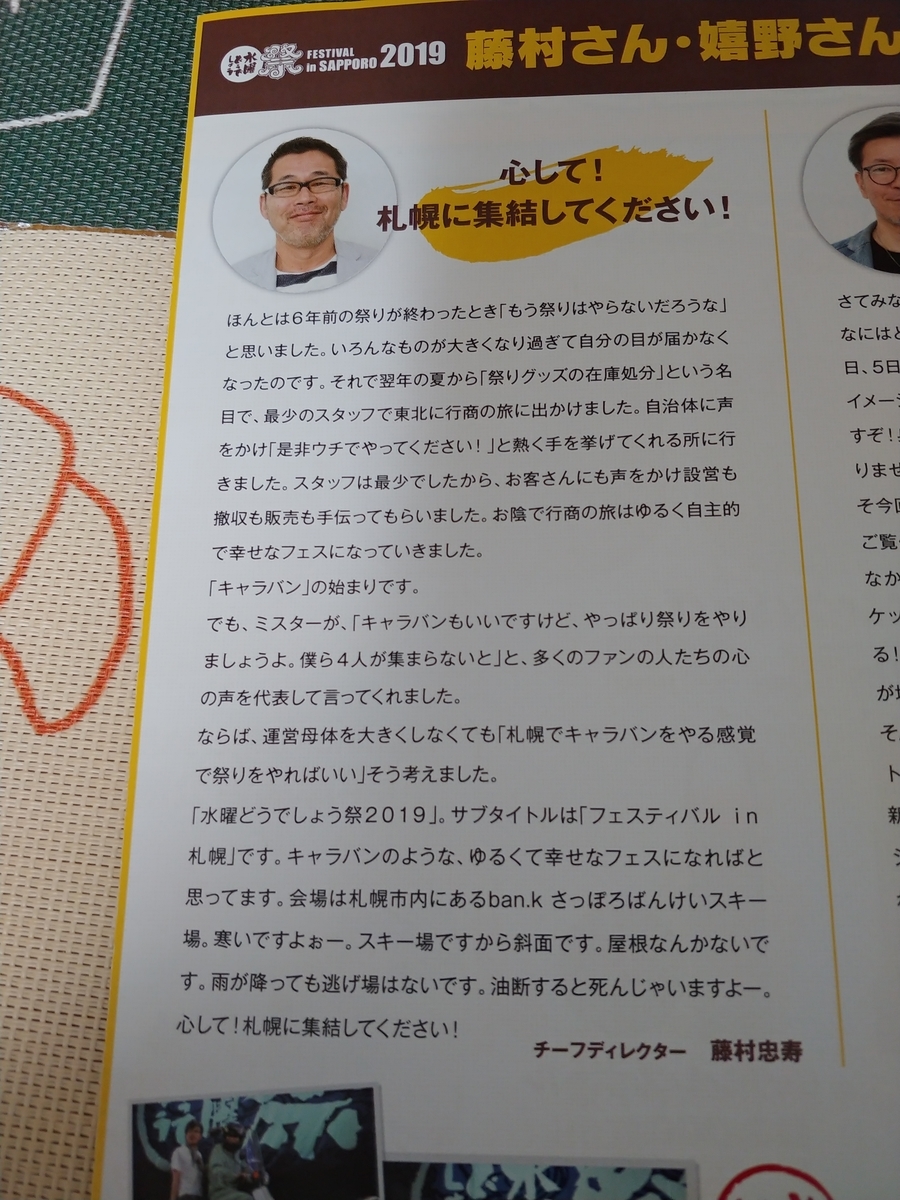 水曜どうでしょう祭 FESTIVAL in SAPPORO 2019
藤村さん・嬉野さん
心して!
札幌に集結してください!
ほんとは6年前の祭りが終わったとき「もう祭りはやらないだろうな」
と思いました。いろんなものが大きくなり過ぎて自分の目が届かなく
なったのです。それで翌年の夏から「祭りグッズの在庫処分」という名
目で、最少のスタッフで東北に行商の旅に出かけました。自治体に声
をかけ「是非ウチでやってください!」と熱く手を挙げてくれる所に行
きました。スタッフは最少でしたから、お客さんにも声をかけ設営も
撤収も販売も手伝ってもらいました。お陰で行商の旅はゆるく自主的
で幸せなフェスになっていきました。
「キャラバン」の始まりです。
でも、ミスターが、「キャラバンもいいですけど、やっぱり祭りをやり
ましょうよ。僕ら4人が集まらないと」と、多くのファンの人たちの心
の声を代表して言ってくれました。
ならば、運営母体を大きくしなくても「札幌でキャラバンをやる感覚
で祭りをやればいい」そう考えました。
「水曜どうでしょう祭2019」。サブタイトルは「フェスティバル in
札幌」です。キャラバンのような、ゆるくて幸せなフェスになればと
思ってます。会場は札幌市内にあるban.k さっぽろばんけいスキー
場。寒いですよぉー。スキー場ですから斜面です。屋根なんかないで
す。雨が降っても逃げ場はないです。油断すると死んじゃいますよー。
心して!札幌に集結してください!
チーフディレクター 藤村忠寿
さてみな
なにはと
日、5日
イメージ
すぞ!
りませ
そ今回
ご覧
なか
ケッ
る!
が
そ
ト
新